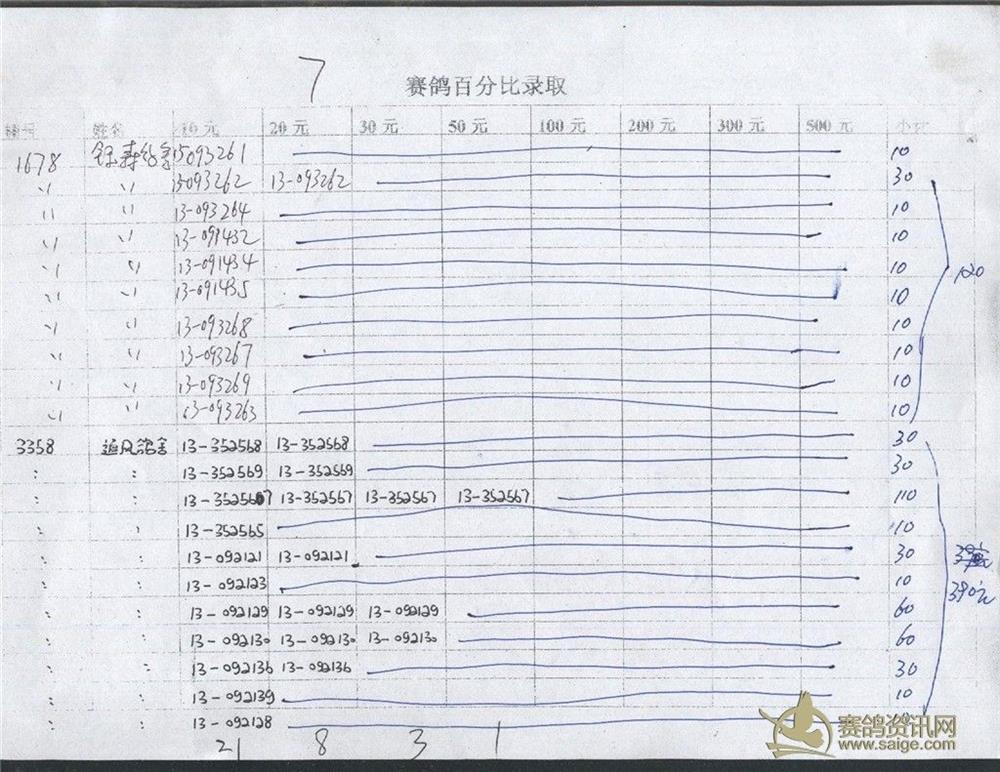 7
赛鸽百分比录取
棚号 姓名 10元 20元 30元 50元 100元 200元 300元 500元 小计
1678 15093261 10
〃 〃 13-093262 13-093262 30
〃 〃 13-093264 10
〃 〃 13-091432 10
〃 〃 13-091434 10
〃 〃 13-091435 10
〃 〃 13-093268 10
〃 〃 13-093267 10
〃 〃 13-093269 10
〃 〃 13-093263 10
120
3358 追风鸽舍 13-352568 13-352568 30
: : 13-352569 13-352569 30
: : 13-352567 13-352567 13-352567 13-352567 110
: : 13-352565 10
: : 13-092121 13-092121 30
: : 13-092123 10
390元
: : 13-092129 13-092129 13-092129 60
: : 13-092130 13-092130 13-092130 60
: : 13-092136 13-092136 30
: : 13-092139 10
: : 13-092128 10
21 8 3 1
赛鸽资讯网
www.saige.com